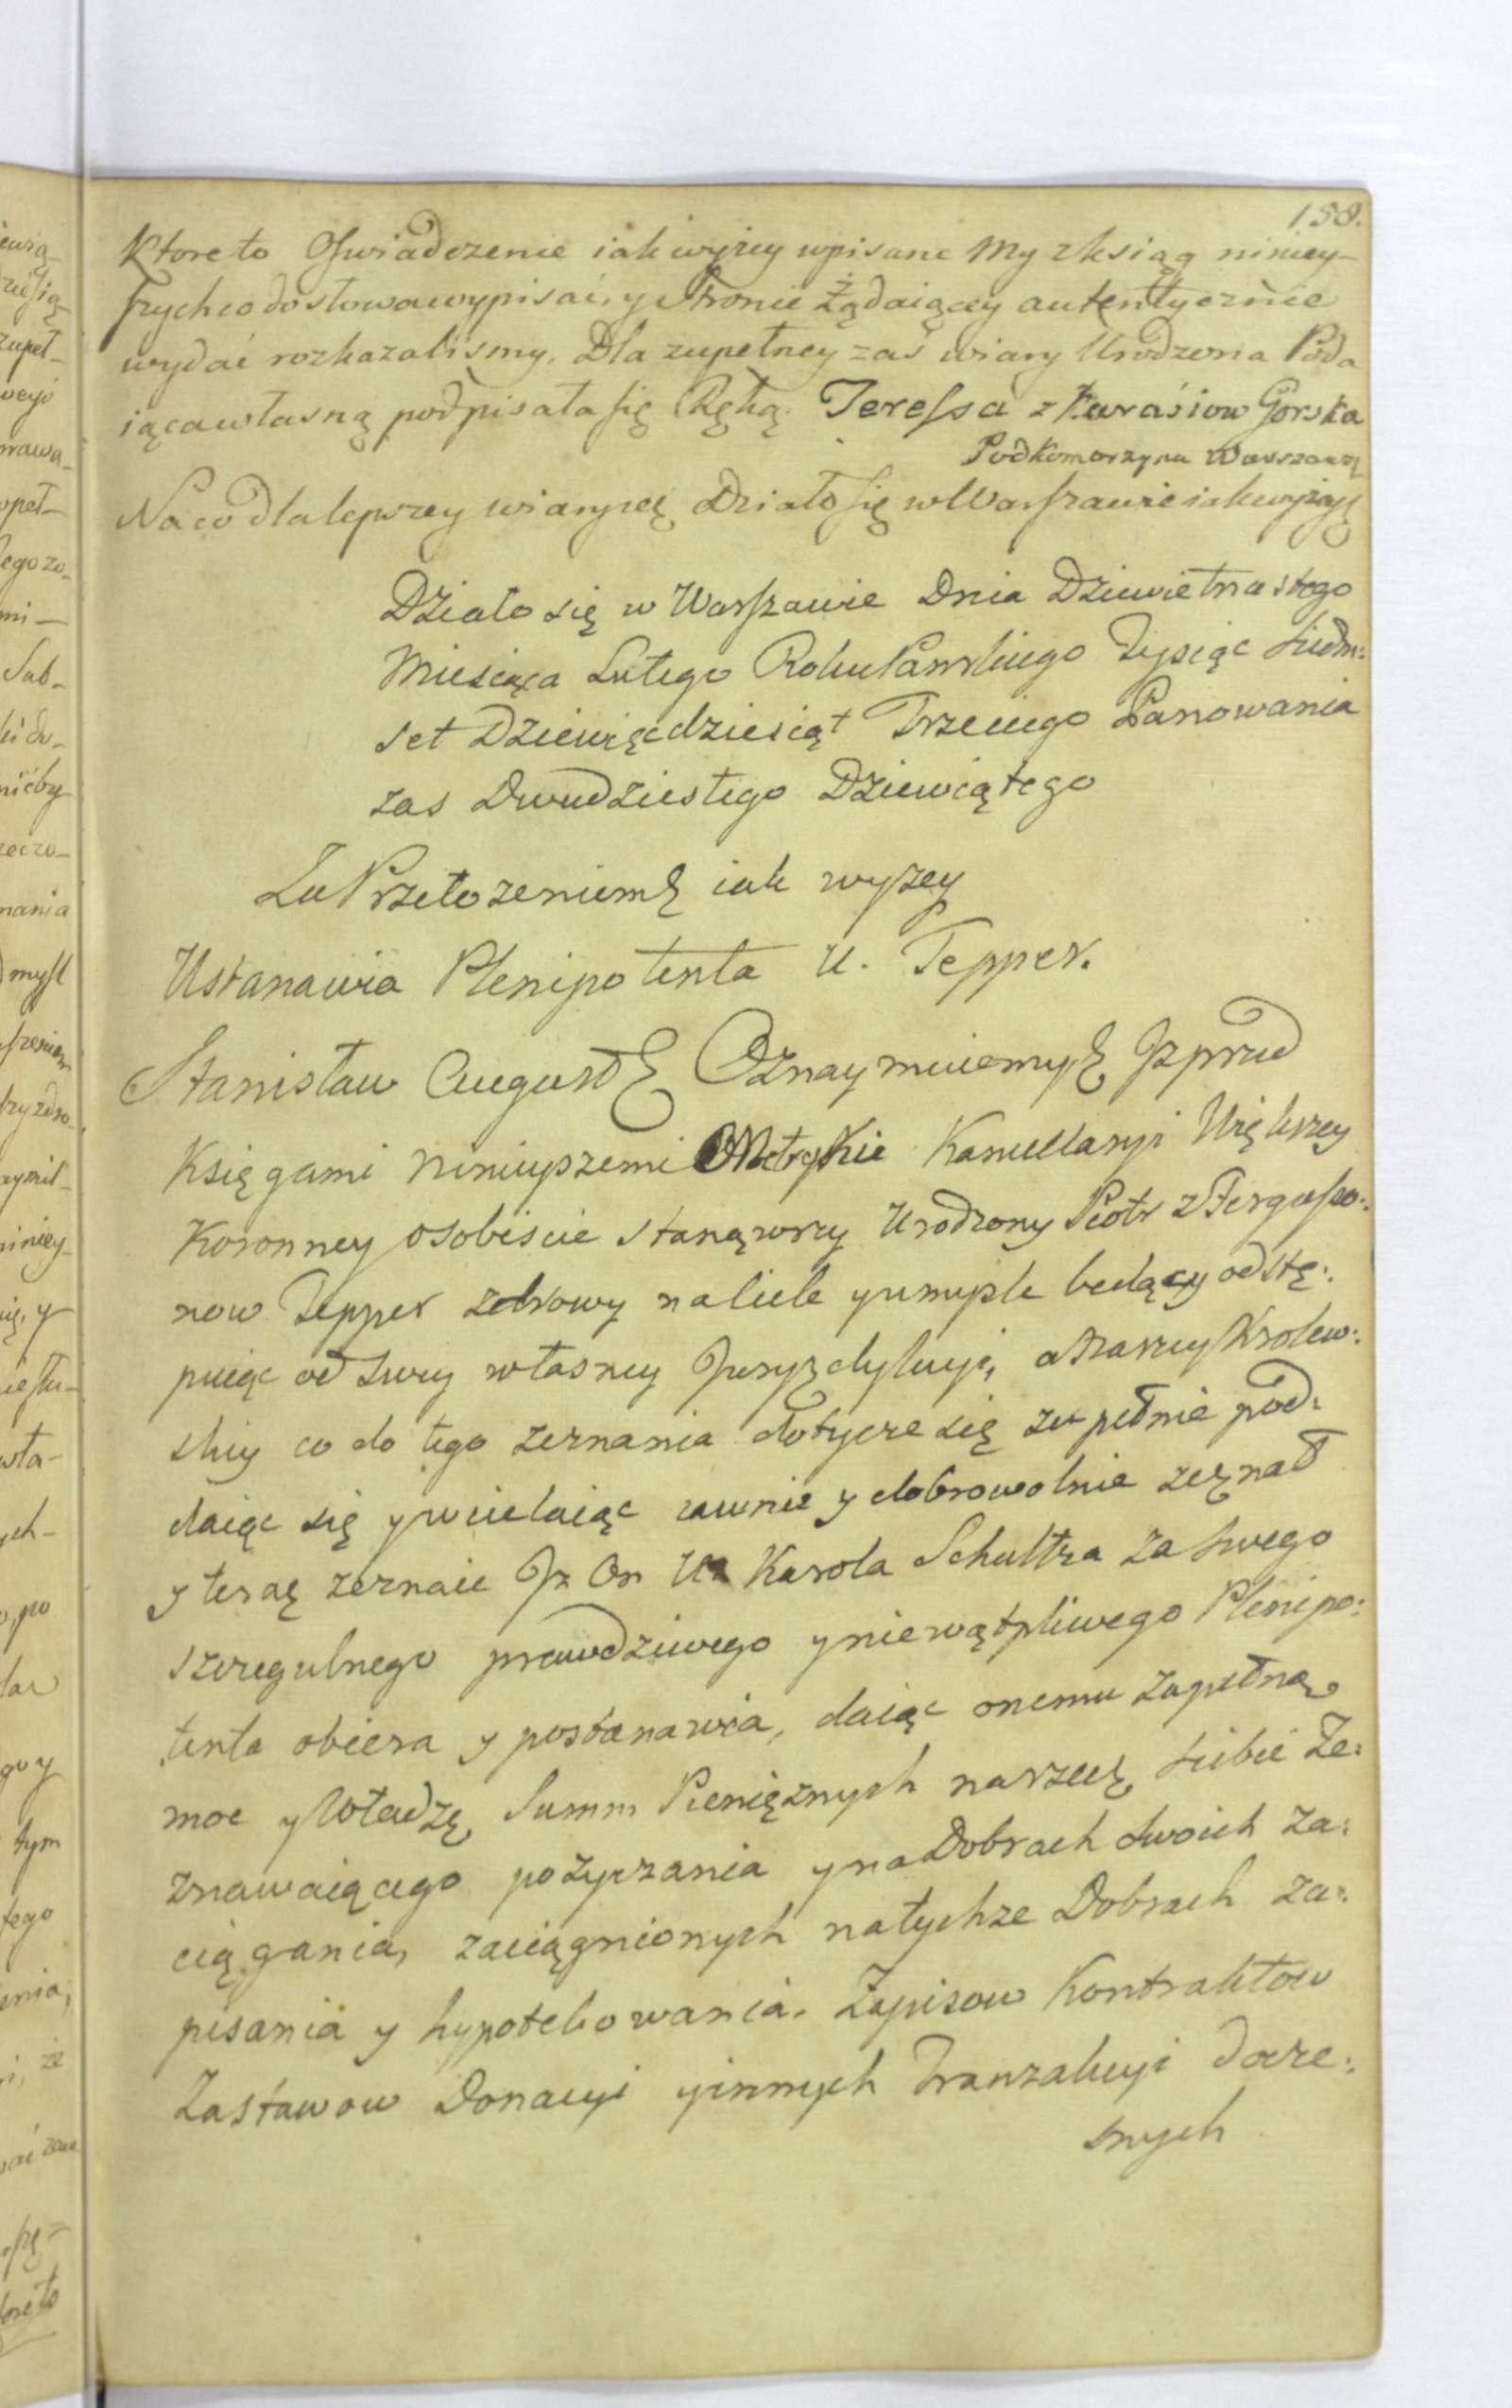 158.
Ktore to Oświadczenie iak wyżey wpisane My z ksiąg niniey-
szych co do słowa wypisać, y Stronie Żądaiącey autentycznie
wydać rozkazaliśmy. Dla zupełney zaś wiary Urodzona Poda
iąca własną podpisała się Ręką. Teressa z Karasiow Gorska
Podkomorzyna Warszaws
Na co dla lepszey wiary Działo się w Warszawie iak wyżey
Działo się w Warszawie Dnia Dziewietnastego
Miesiąca Lutego Roku Panskiego Tysiąc siedm:
set Dziewięcdziesiąt Trzeciego Panowania
zas Dwudziestego Dziewiątego
Za Przełozeniem iak wyzey
Ustanawia Plenipotenta U. Tepper.
Stanisław August Oznaymuiemy Iz przed
Księgami ninieyszemi Metryki Kancellaryi Większey
Koronney osobiscie stanąwszy Urodzony Piotr z Ferguso:
now Tepper zdrowy na ciele y umysle będący odstę:
puiąc od swey własney Juryzdykcyi, a Naszey Krolew:
skiey co do tego zeznania dotycze się zupełnie pod:
daiąc się y wcielaiąc iawnie y dobrowolnie zeznał
y teraz zeznaie Iz On Ur Karola Schultza za swego
szczegulnego prawdziwego y niewątpliwego Plenipo:
tenta obiera y postanawia, daiąc onemu zupełną
moc y Władzę Summ Pienięznych na rzecz siebie Ze:
znawaiącego pozyczania y na Dobrach swoich za:
ciągania, zaciągnionych na tychze Dobrach za:
pisania y hypotekowania. Zapisow Kontraktow
Zastawow Donacyi y innych Tranzakcyi docze:
snych